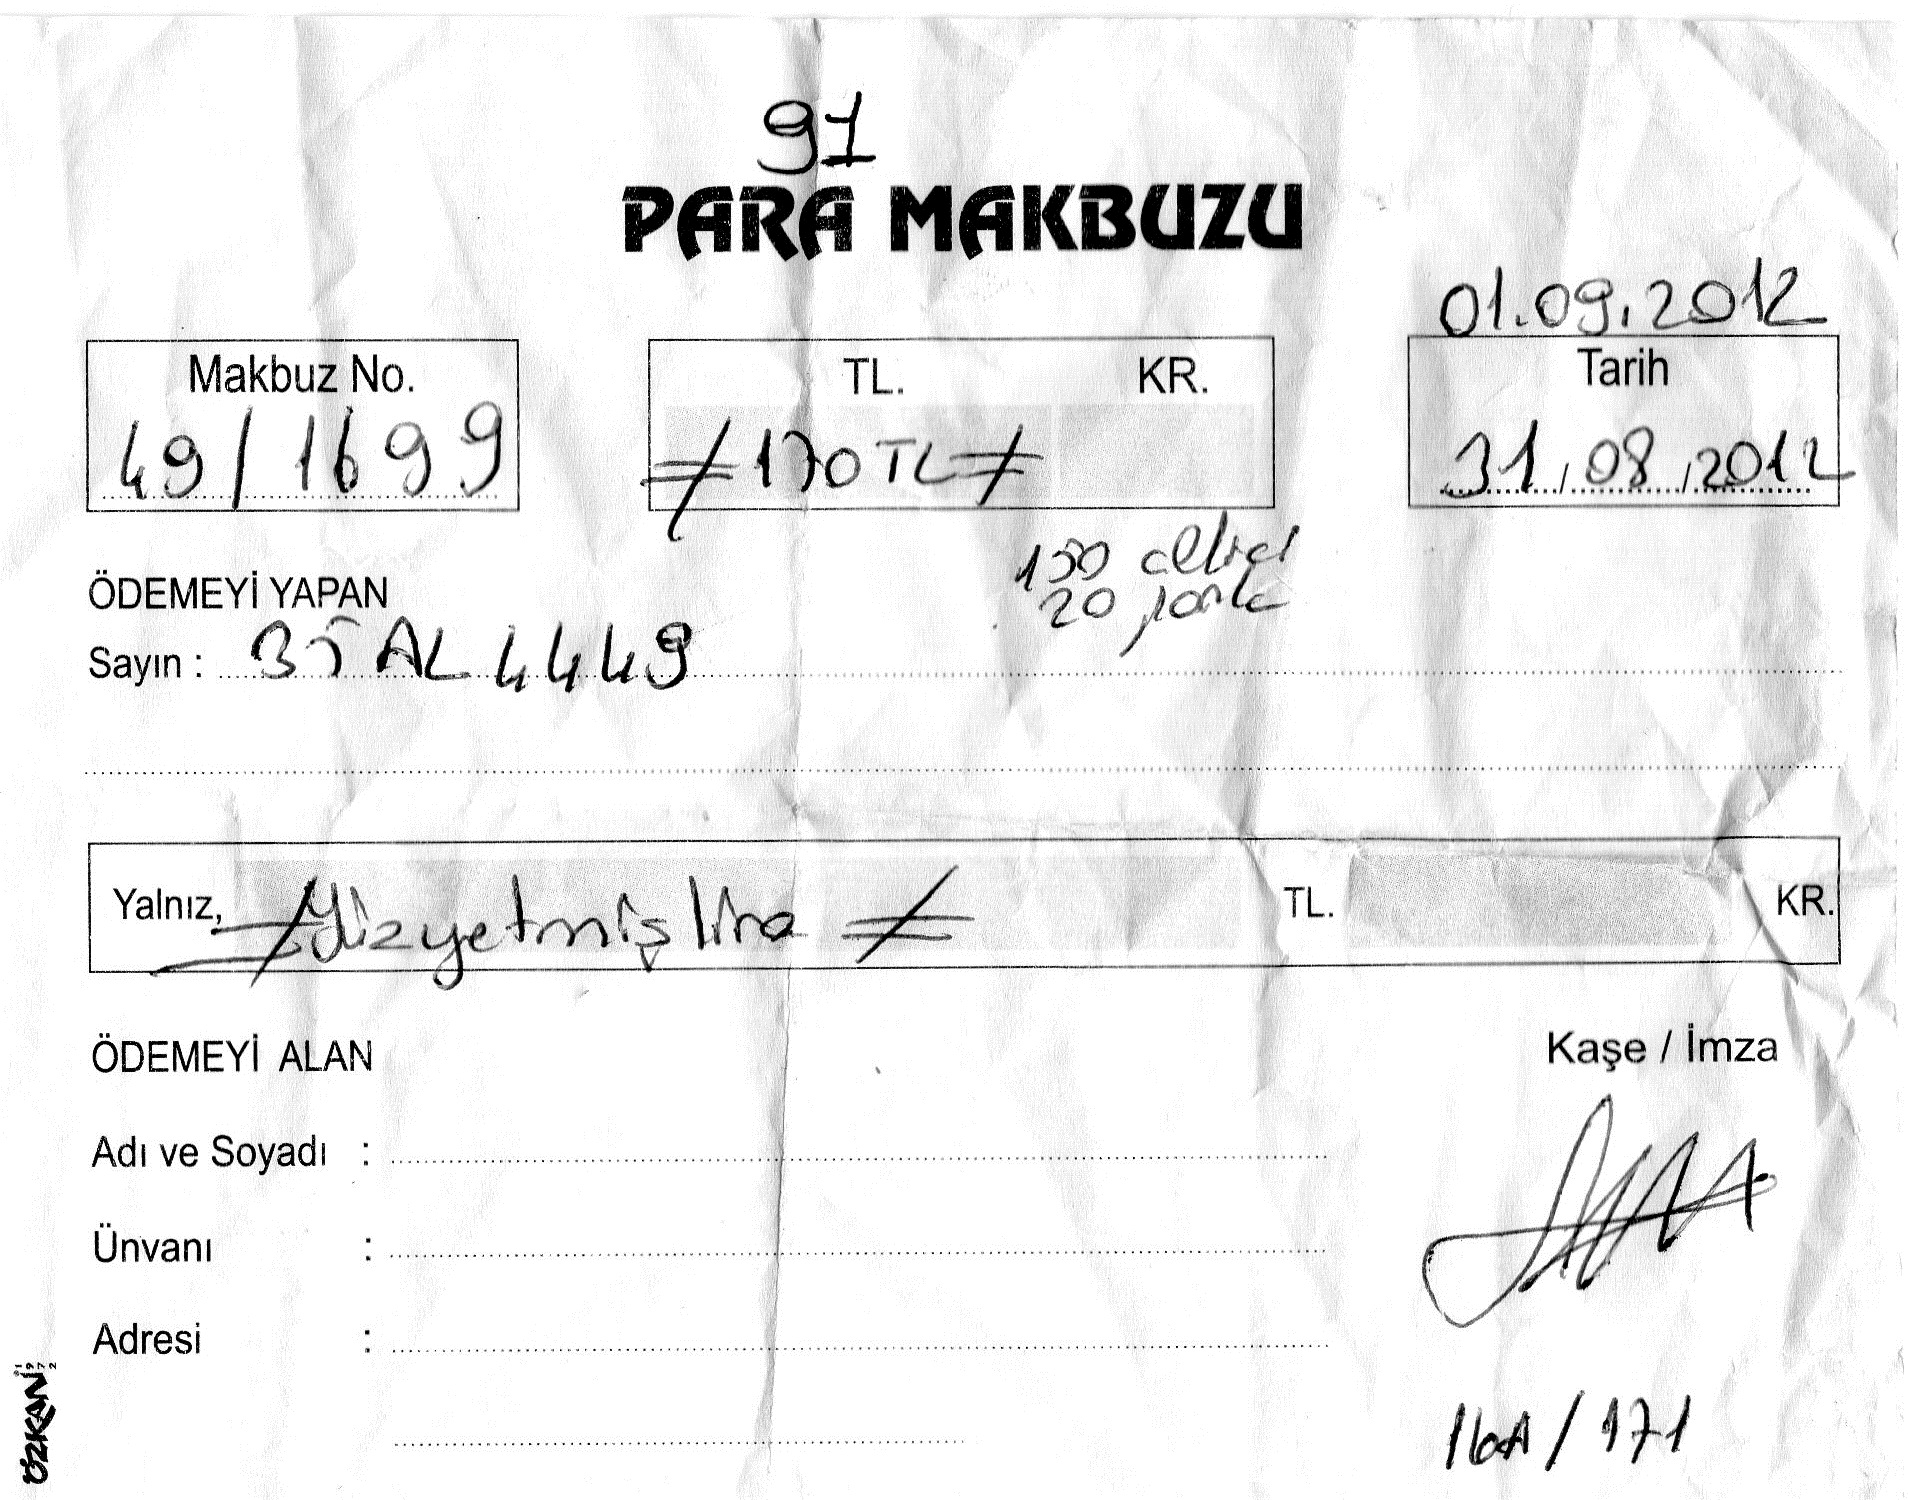 91
PARA MAKBUZU
01.09.2012
Makbuz No.
49/1699
TL. KR.
170 TL
Tarih
31/08/2012
150
20
ÖDEMEYİ YAPAN
Sayın : 35 AL 4449
Yalnız, Yüzyetmiş lira TL. KR.
ÖDEMEYİ ALAN
Kaşe / İmza
Adı ve Soyadı :
Ünvanı :
Adresi :
16A/171
ÖZKAN
1972